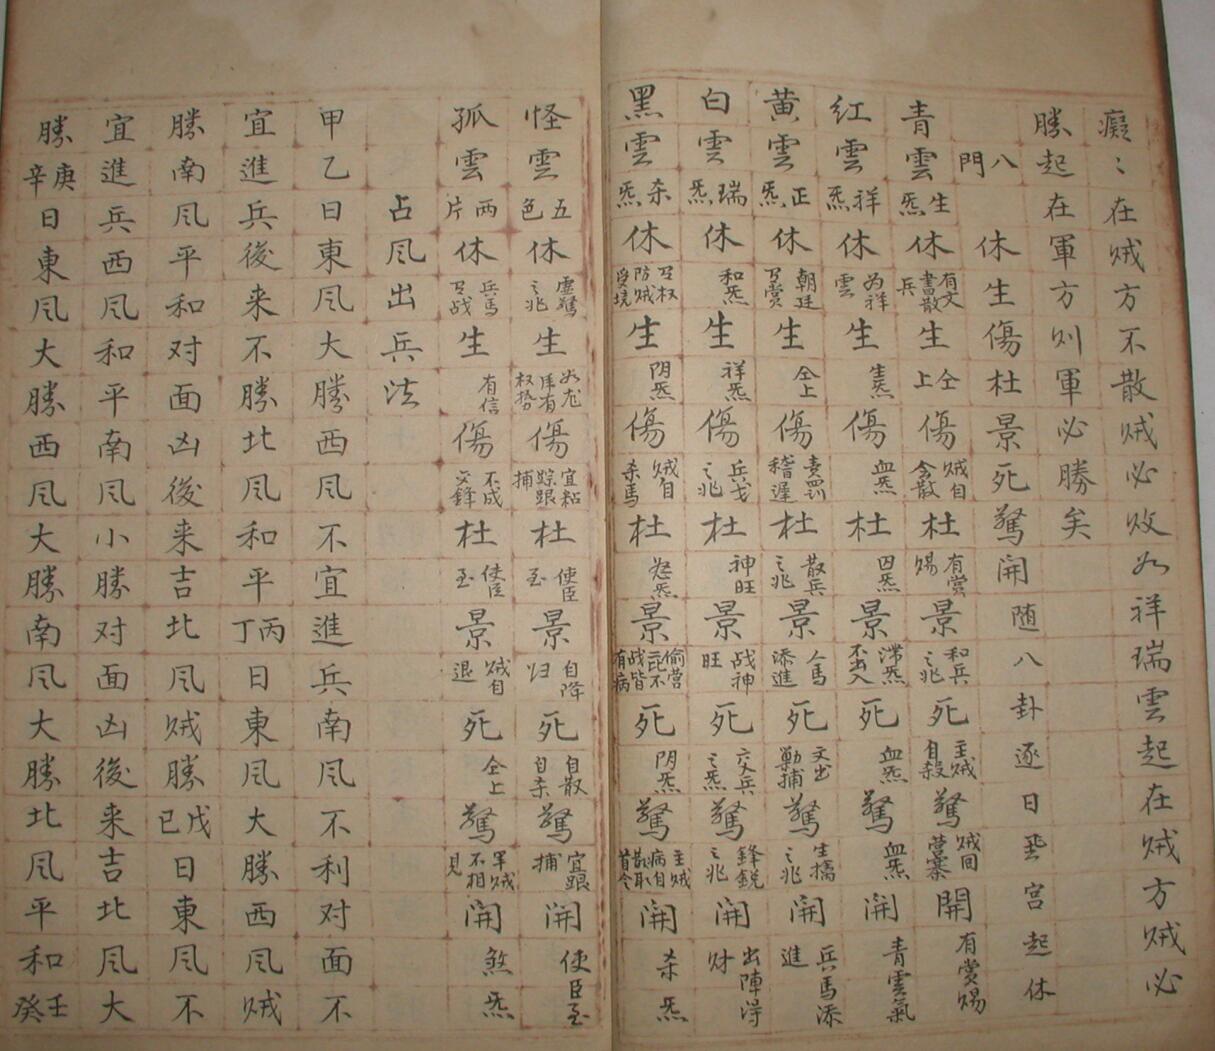 癡〻在贼方不散贼必败如祥瑞雲起在贼方贼必
勝起在軍方则軍必勝矣
八門休生傷杜景死驚開随八卦逐日垂宫起休
青雲生炁休有文書散兵生仝上傷贼自舍散杜有賞賜景和兵之兆死主贼自殺驚贼回营寨開有賞賜
红雲祥炁休为祥雲生生炁傷血炁杜因炁景滞炁不出入死血炁驚血炁開青雲氣
黄雲正炁休朝廷賞生仝上傷稽遅杜散兵之兆景人馬添進死文出勦捕驚生擒之兆開兵馬添進
白雲瑞炁休和炁生祥炁傷兵戈之兆杜神旺景战神旺死之炁驚鋒鋭之兆開出陣得财
黑雲杀炁休防贼生阴炁傷贼自杀馬杜怒炁景偷营战皆不有病死阴炁驚主贼病自開杀炁
怪雲五色休虚驚之兆生有权势傷宜粘踪跟捕杜使臣至景自降归死自散自杀驚宜跟捕開使臣至
孤雲两片休兵馬战生有信傷不成交鋒杜使臣至景贼自退死仝上驚军贼不相見開煞炁
占风出兵法
甲乙日東风大勝西风不宜進兵南风不利对面不
宜進兵後来不勝北风和平丙丁日東风大勝西风贼
勝南风平和对面凶後来吉北风贼勝戊已日東风不
宜進兵西风和平南风小勝对面凶後来吉北风大
勝庚辛日東风大勝西风大勝南风大勝北风平和壬癸